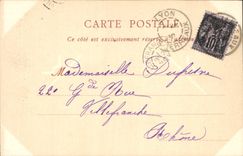 CARTE POSTALE
Ce côté est exclusivement réservé
LYON
Mademoiselle Dufresne
22 G de Rue
Villefranche
Rhône